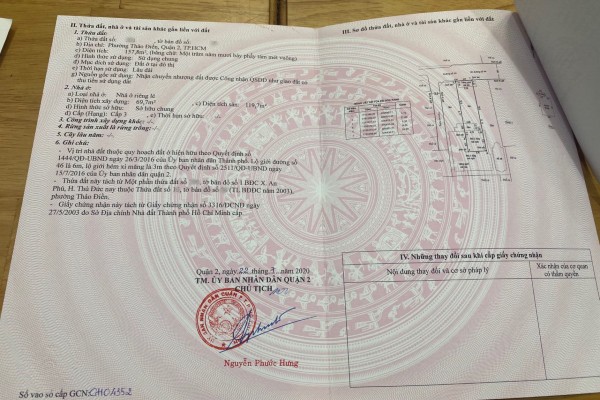 II. Thửa đất, nhà ở và tài sản khác gắn liền với đất
1. Thửa đất:
a) Thửa đất số: , tờ bản đồ số:
b) Địa chỉ: Phường Thảo Điền, Quận 2, TP.HCM
c) Diện tích: 157,8m², (bằng chữ: Một trăm năm mươi bảy phẩy tám mét vuông)
d) Hình thức sử dụng: Sử dụng chung
đ) Mục đích sử dụng: Đất ở tại đô thị
e) Thời hạn sử dụng: Lâu dài
g) Nguồn gốc sử dụng: Nhận chuyển nhượng đất được Công nhận QSDĐ như giao đất có
thu tiền sử dụng đất
2. Nhà ở:
a) Loại nhà ở: Nhà ở riêng lẻ
b) Diện tích xây dựng: 69,7m² , c) Diện tích sàn: 119,7m²
d) Hình thức sở hữu: Sở hữu chung
đ) Cấp (Hạng): Cấp 3 , e) Thời hạn sở hữu: -/-
3. Công trình xây dựng khác: -/-
4. Rừng sản xuất là rừng trồng: -/-
5. Cây lâu năm: -/-
6. Ghi chú:
- Vị trí nhà đất thuộc quy hoạch đất ở hiện hữu theo Quyết định số
1444/QĐ-UBND ngày 26/3/2016 của Ủy ban nhân dân Thành phố. Lộ giới đường số
46 là 6m, lộ giới hẻm xi măng là 3m theo Quyết định số 2511/QĐ-UBND ngày
15/7/2016 của Ủy ban nhân dân quận 2.
- Thửa đất này tách từ Một phần thửa đất số , tờ bản đồ số 1 BĐDC X. An
Phú, H. Thủ Đức nay thuộc Thửa đất số , tờ bản đồ số (TL BĐDC năm 2003),
phường Thảo Điền.
- Giấy chứng nhận này tách từ Giấy chứng nhận số 3316/DCND ngày
27/5/2003 do Sở Địa chính Nhà đất Thành phố Hồ Chí Minh cấp.
Quận 2, ngày 22 tháng 9 năm 2020
TM. ỦY BAN NHÂN DÂN QUẬN 2
CHỦ TỊCH
Nguyễn Phước Hưng
Số vào sổ cấp GCN:
III. Sơ đồ thửa đất, nhà ở và tài sản khác gắn liền với đất
IV. Những thay đổi sau khi cấp giấy chứng nhận
Nội dung thay đổi và cơ sở pháp lý
Xác nhận của cơ quan
có thẩm quyền